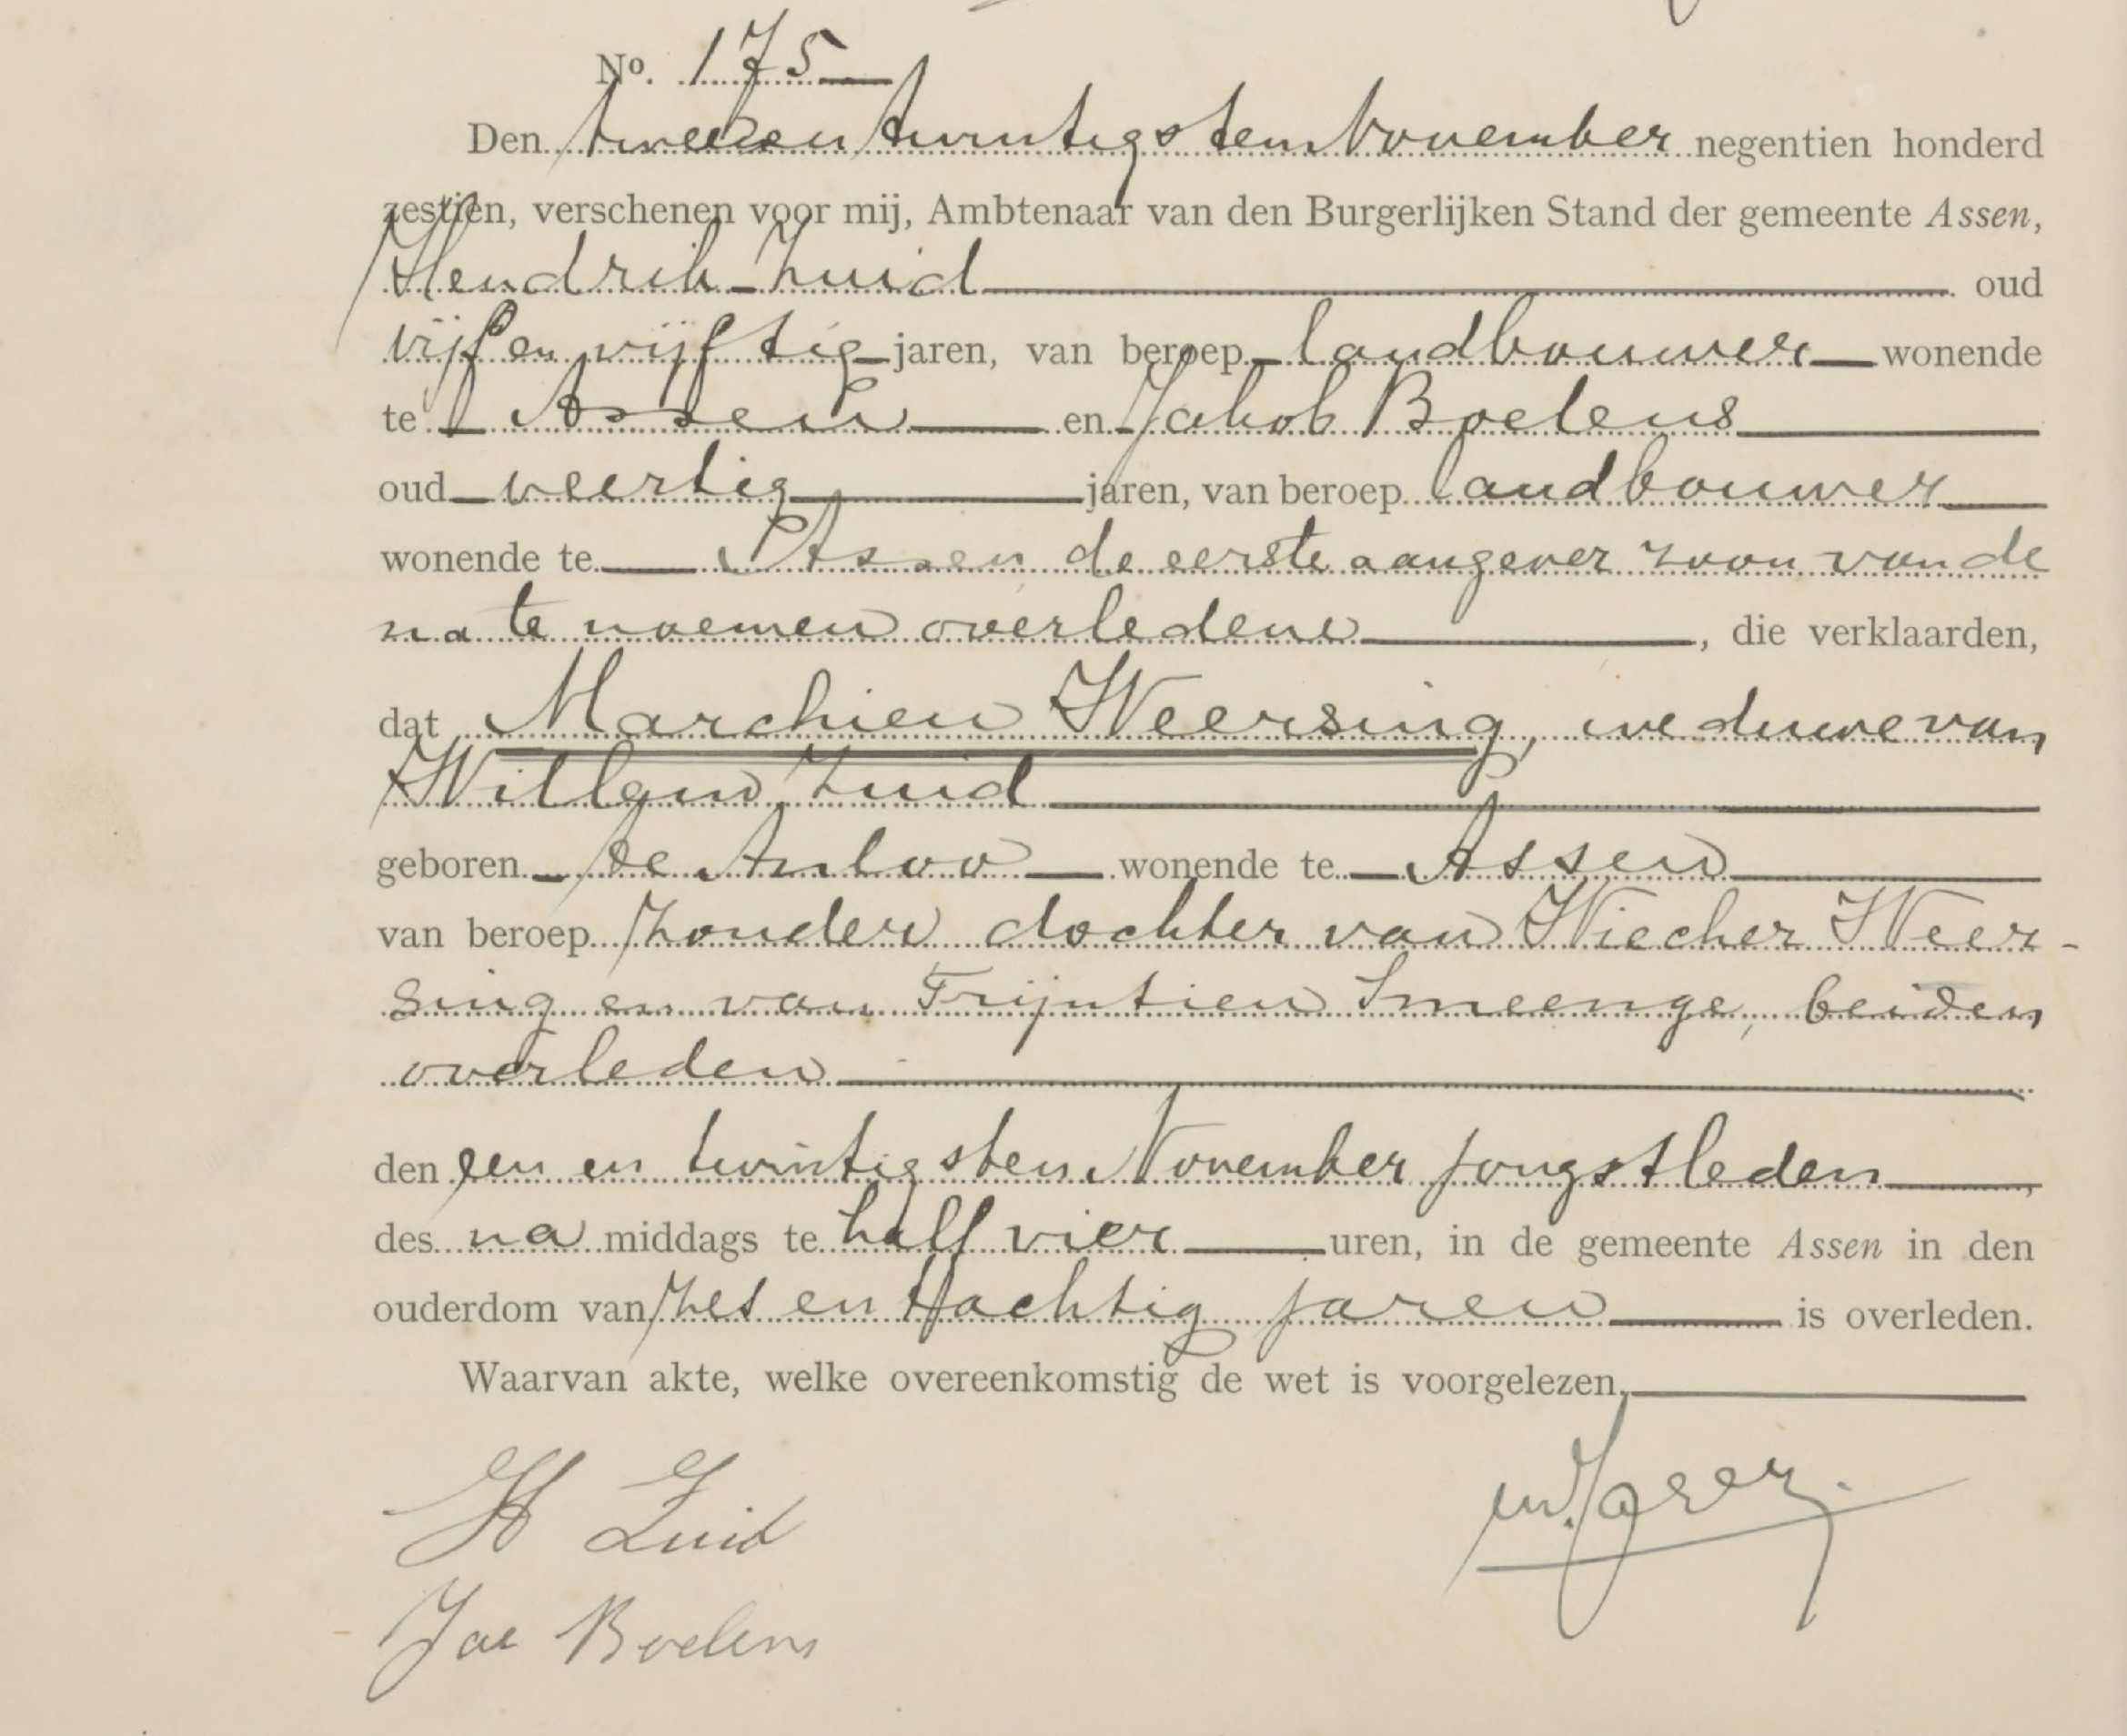 No. 175
Den twee en twintigsten November negentien honderd
zestien, verschenen voor mij, Ambtenaar van den Burgerlijken Stand der gemeente Assen,
Hendrik Zuid oud
vijf en vijftig jaren, van beroep landbouwer wonende
te Assen en Jakob Boelens
oud veertig jaren, van beroep landbouwer
wonende te Assen de eerste aangever zoon van de
na te noemen overledene, die verklaarden,
dat Marchien Weersing, weduwe van
Willem Zuid
geboren te Anloo wonende te Assen
van beroep zonder dochter van Wiecher Weer-
sing en van Trijntien Smeenge, beiden
overleden
den een en twintigsten November jongstleden,
des na middags te half vier uren, in de gemeente Assen in den
ouderdom van zes en tachtig jaren is overleden.
Waarvan akte, welke overeenkomstig de wet is voorgelezen,
H Zuid
Jac Boelens